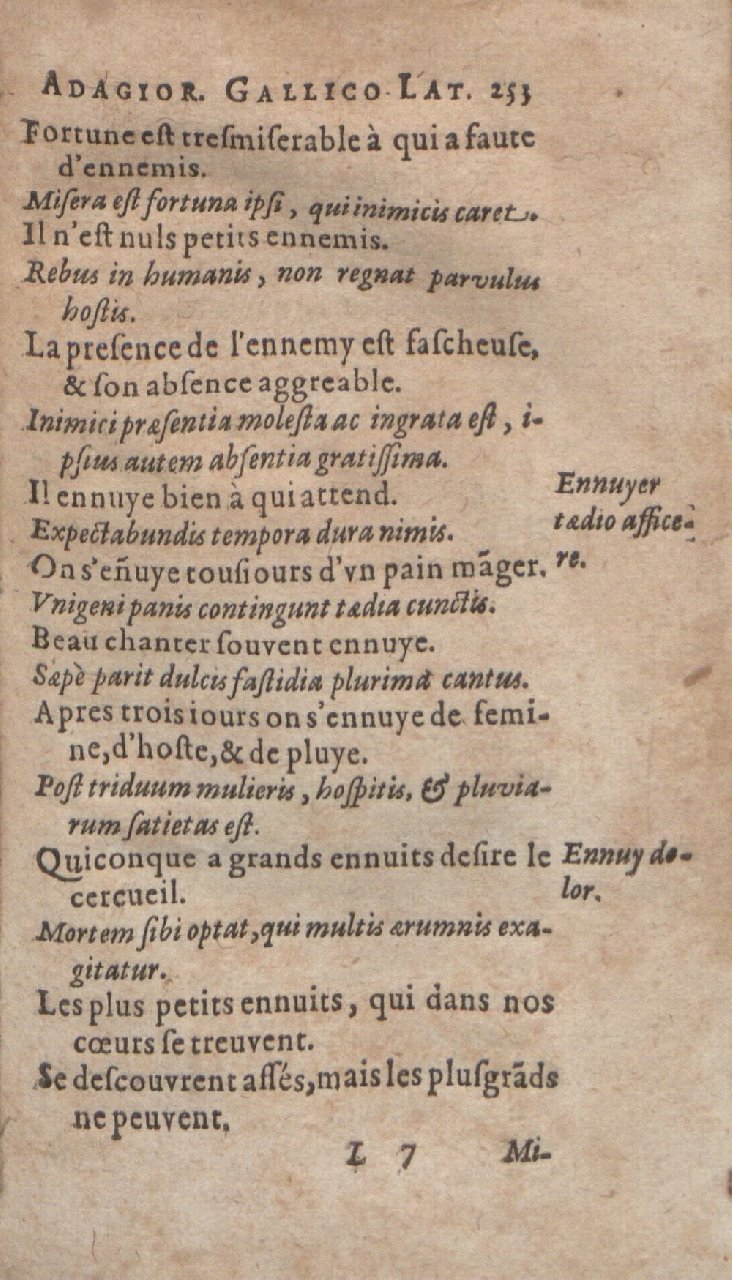 ADAGIOR. GALLICO LAT. 253
Fortune est tresmiſerable à qui a faute
d'ennemis.
Miſera eſt fortuna ipſi, qui inimicis caret.
Il n'eſt nuls petits ennemis.
Rebus in humanis, non regnat parvulus
hoſtis.
La preſence de l'ennemy eſt faſcheuſe,
& ſon abſence aggreable.
Inimici præſentia moleſta ac ingrata eſt, i-
pſius autem abſentia gratiſſima.
Il ennuye bien à qui attend.
Ennuyer
tædio affice-
re.
Expectabundis tempora dura nimis.
On s'eñuye touſiours d'vn pain mãger.
Vnigeni panis contingunt tædia cunctis.
Beau chanter ſouvent ennuye.
Sæpè parit dulcis faſtidia plurima cantus.
Apres trois iours on s'ennuye de femi-
ne, d'hoſte, & de pluye.
Poſt triduum mulieris, hoſpitis, & pluvia-
rum ſatietas eſt.
Quiconque a grands ennuits deſire le
cercueil.
Ennuy do-
lor.
Mortem ſibi optat, qui multis ærumnis exa-
gitatur.
Les plus petits ennuits, qui dans nos
cœurs ſe treuvent.
Se deſcouvrent aſſés, mais les plus grãds
ne peuvent.
L 7 Mi-